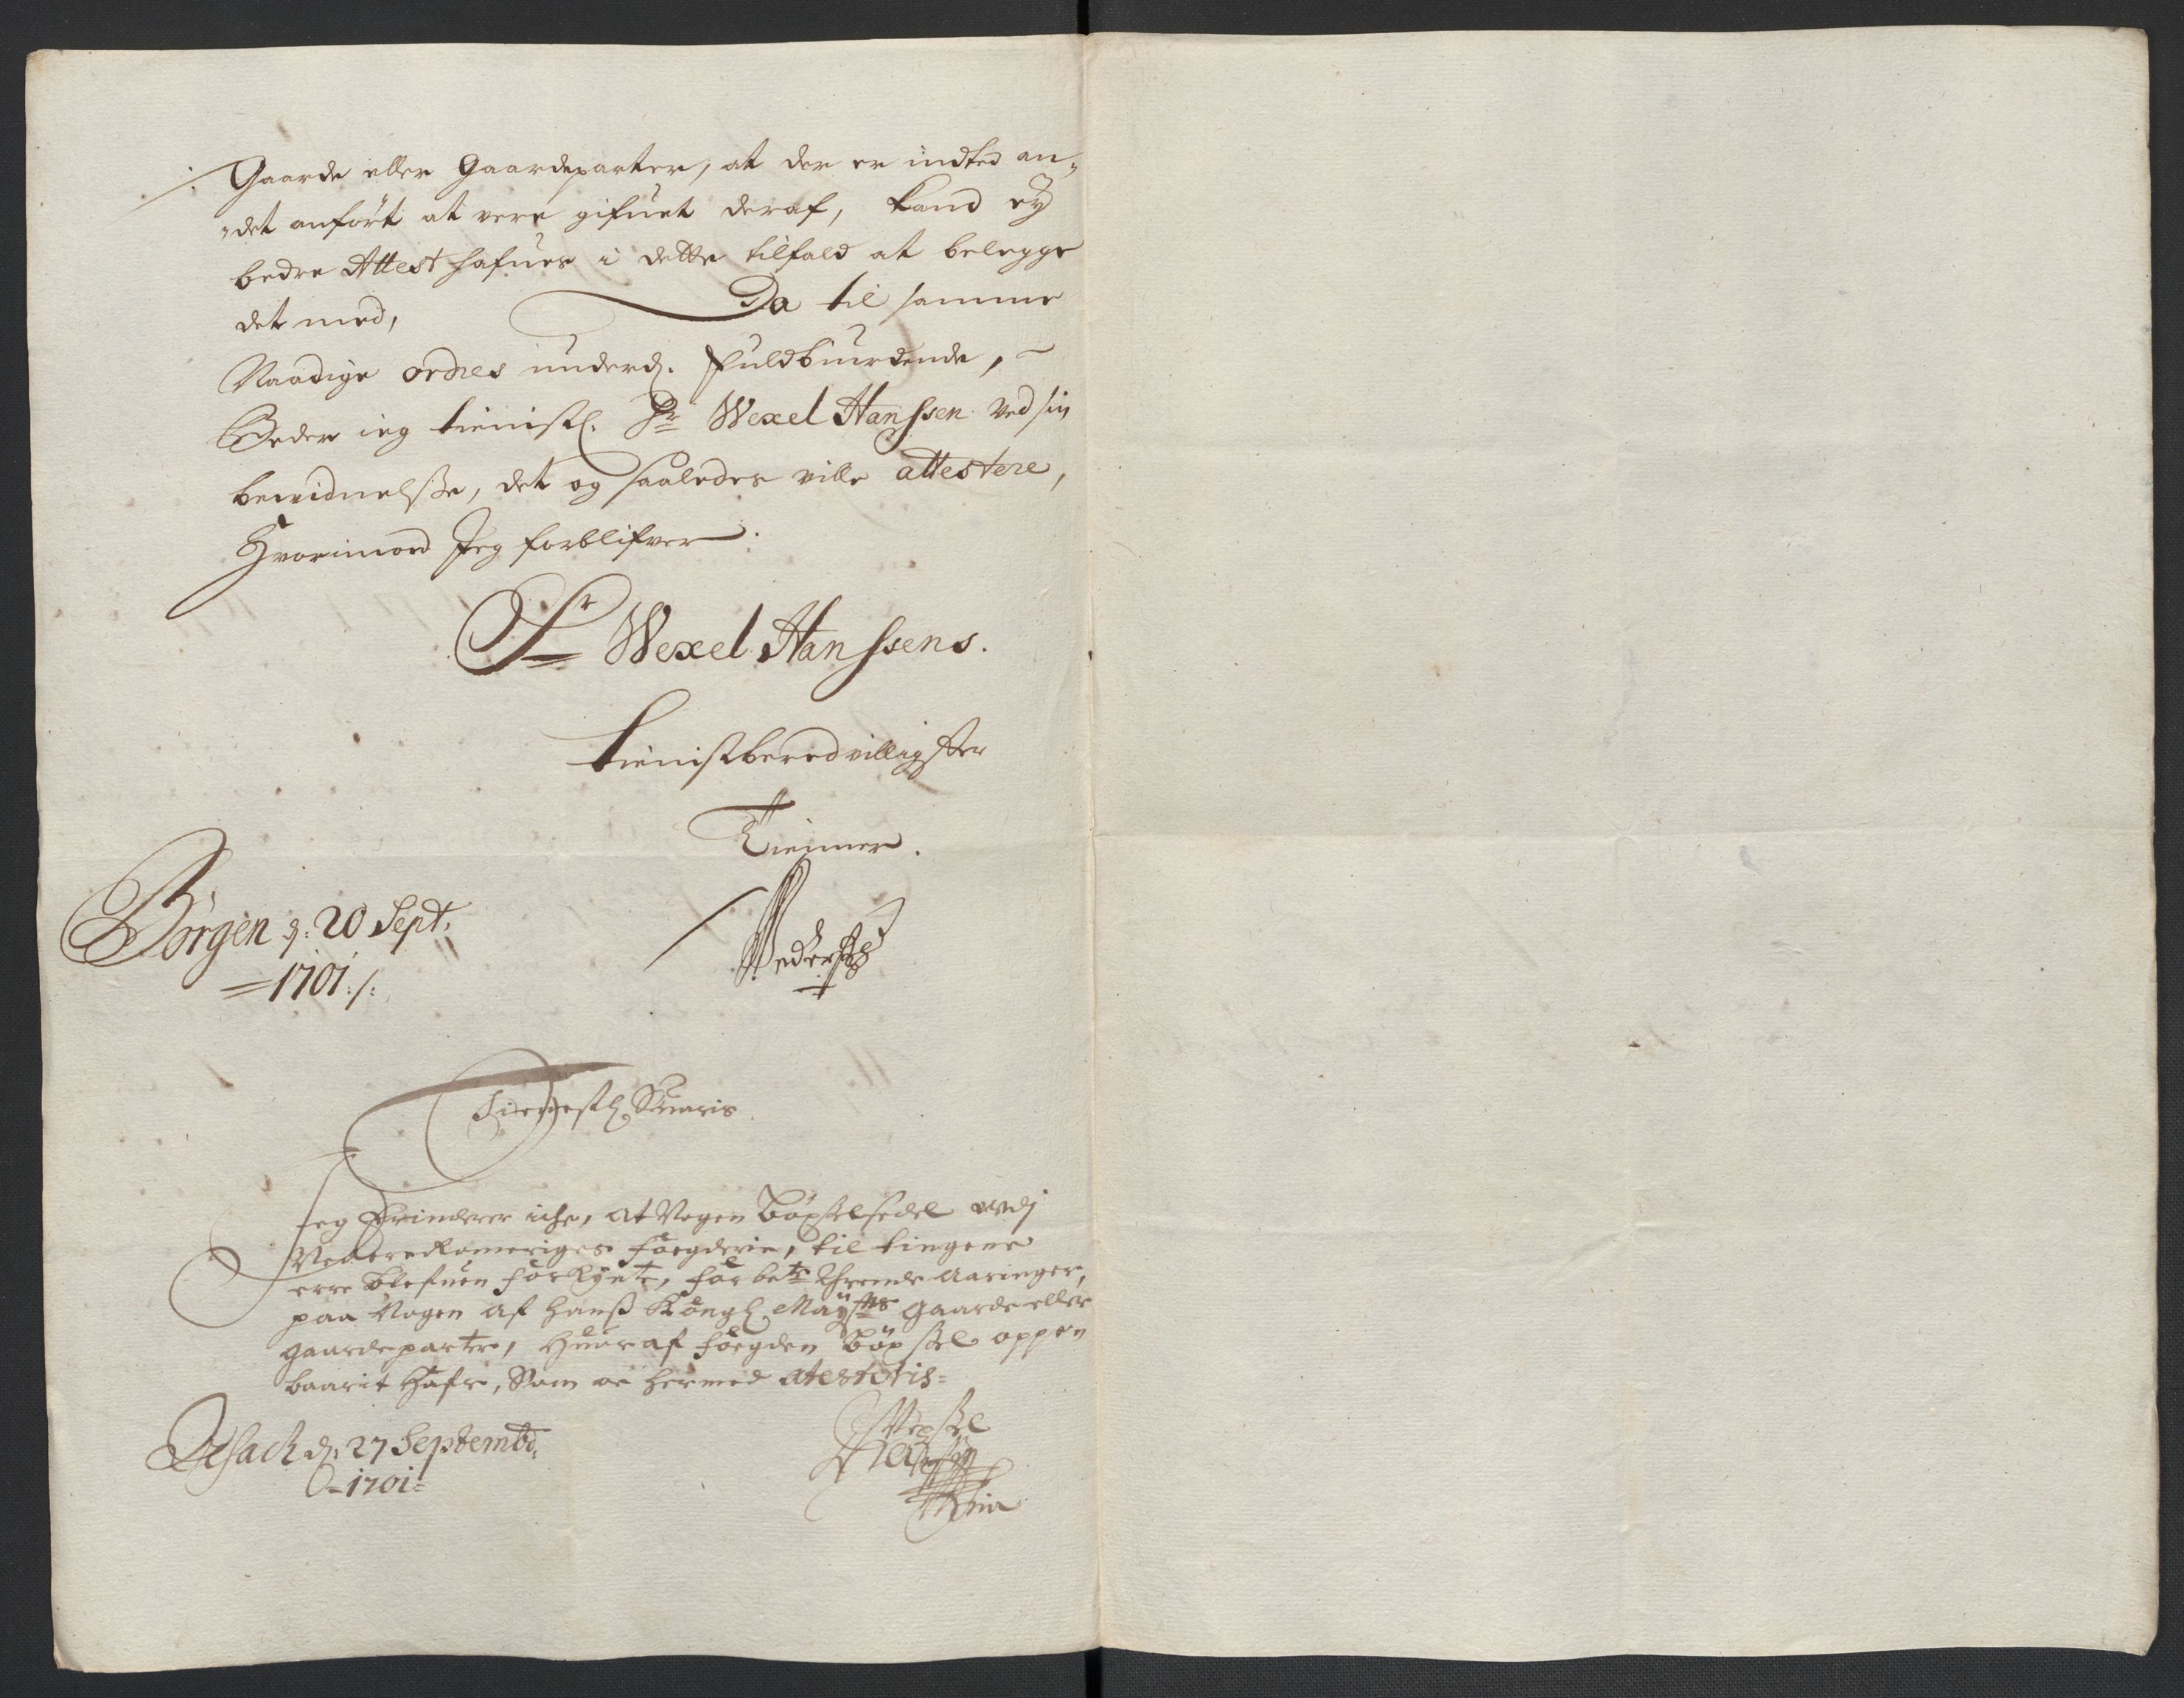 Gaarde eller Gaardeparter, at der er indted an-
det anført at vere gifuet deraf, kand ey
bedre Attest hafues i dette tilfald at belegge
det med, Da til samme
Naadige ordres underd. fuldbiurdende,
Beder ieg tienistl. Sr Wexel Hanssen ved sin
bewidnelsse, det og saaledes ville attestere,
Hvorimod Jeg forblifver.
Sr Wexel Hanssens.
tienistberedvilligster
Tienner.
Børgen d: 20 Sept:
1701:/:
Tienestl Suaris
Jeg Erindrer iche, at Nogen bøxselsedel udj
Nederromeriges foegderie, til tingene
erre blefuen forkynt, for bete Threende Aaringer,
paa Nogen af hans Kongl Mayts gaarde eller
gaardeparter, Huoraf foegden bøxsel oppen
baarit hafr, Som oc hermed atesteris
d: 27 Septembd:
1701
Wexsel
Hansen